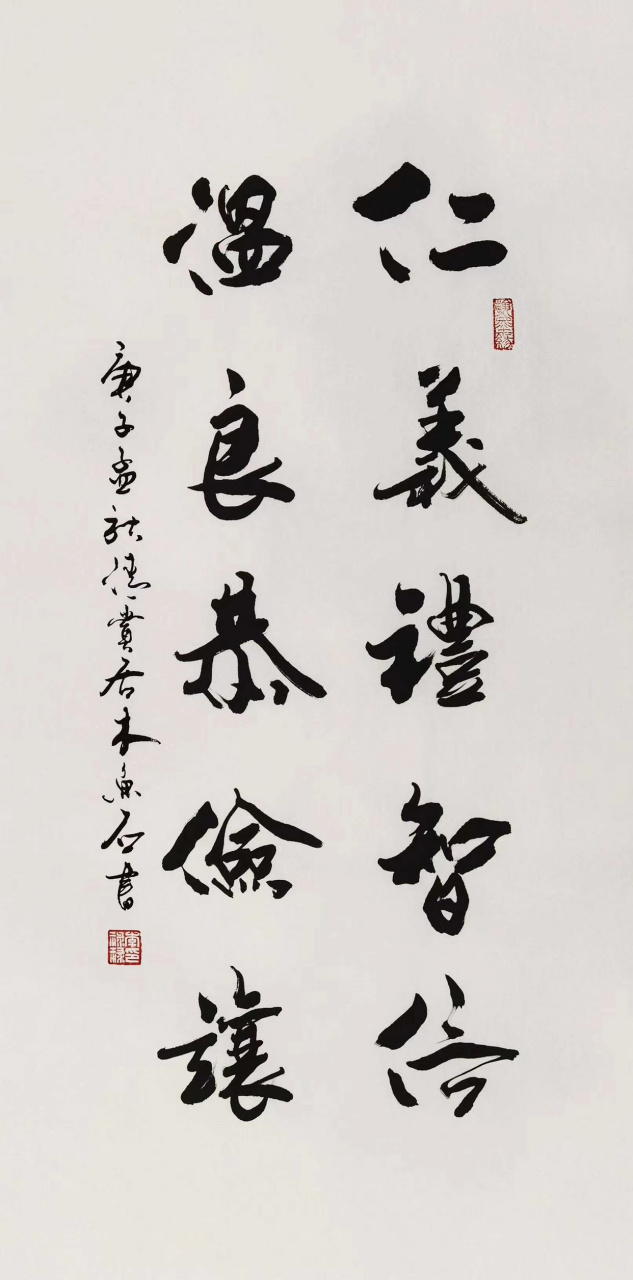 仁義禮智信
溫良恭儉讓
庚子孟秋清賞居木魚石書